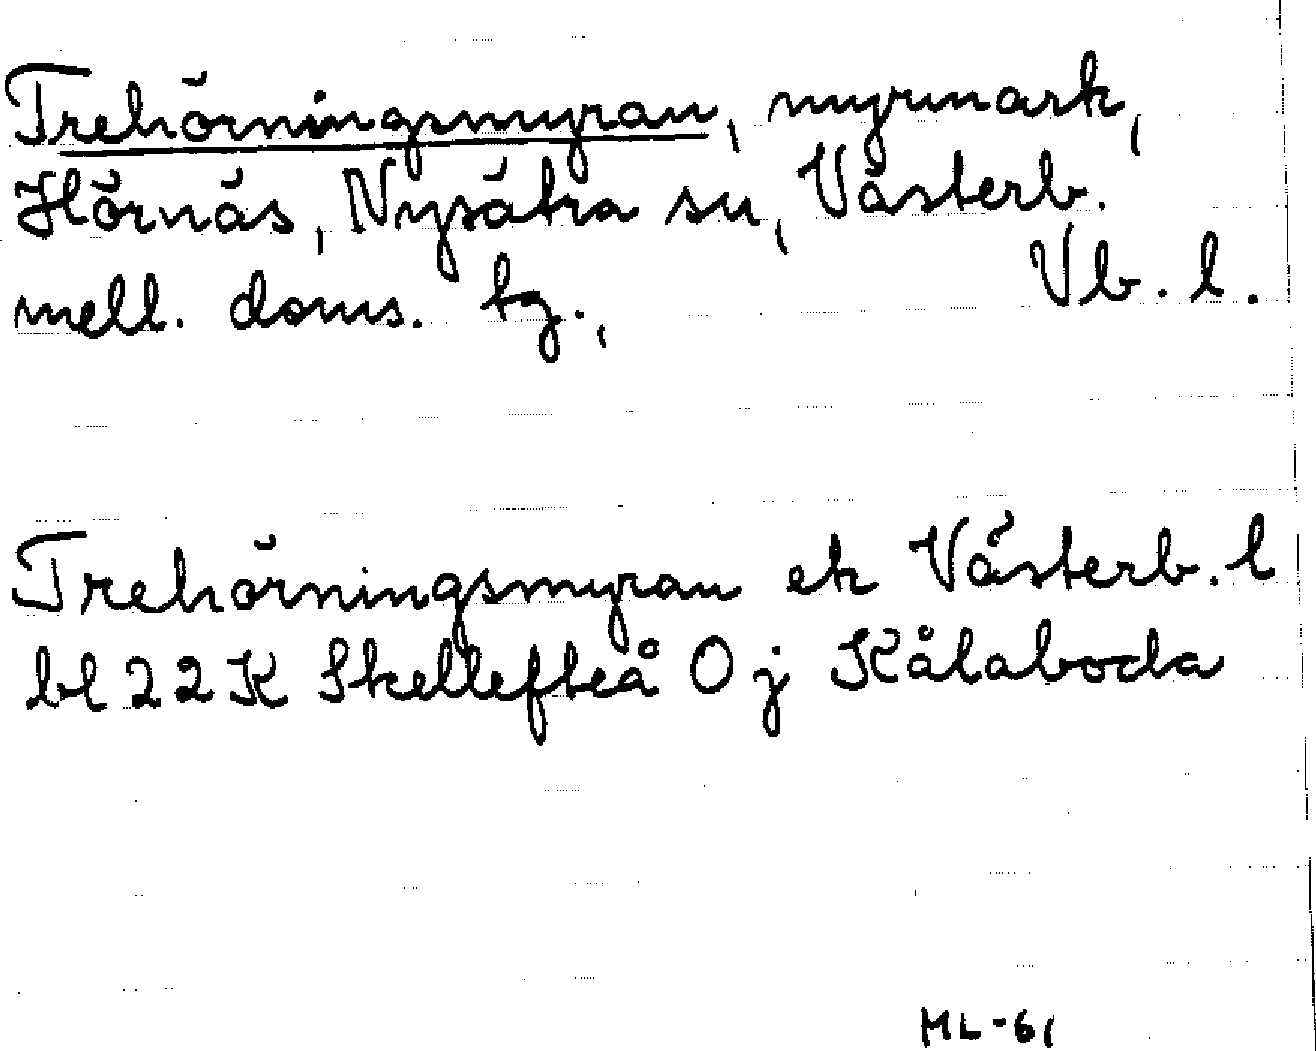 Trehörningsmyran, myrmark,
Hörnäs, Nysätra sn, Västerb.
mell. doms. tg., Vb. l.
Trehörningsmyran ek Västerb. l
bl 22K Skellefteå O j Kålaboda
ML-61